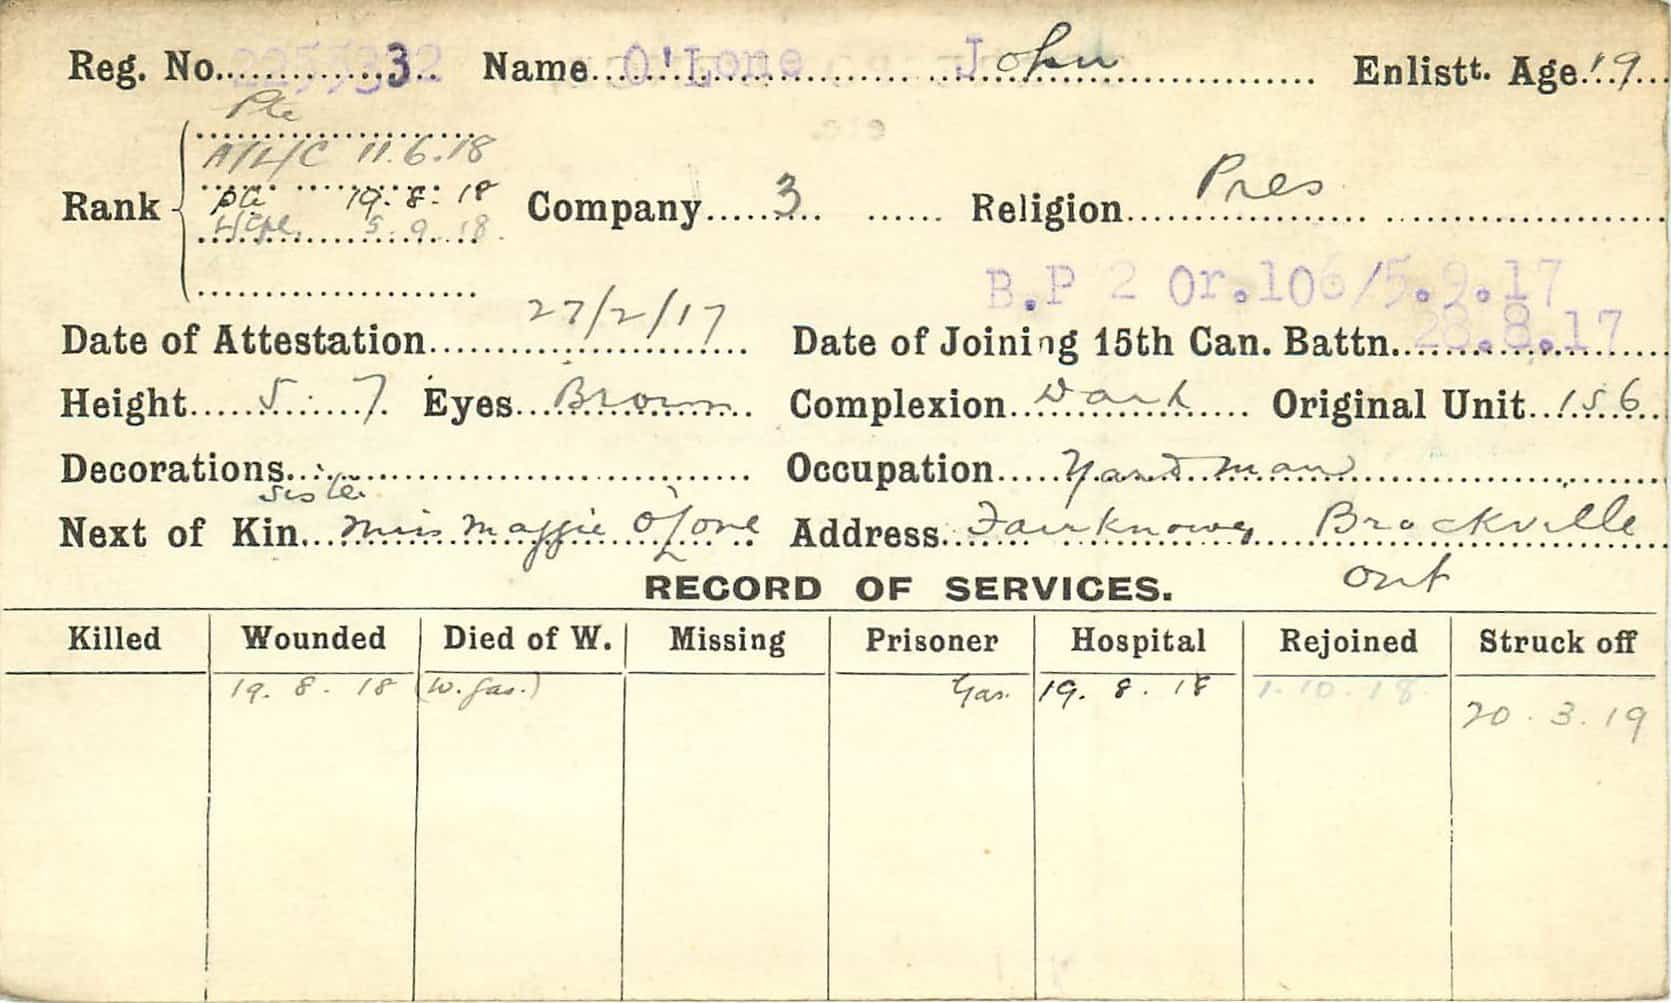 Reg. No. 2255332 Name O'Lone John Enlistt. Age 19
Pte
A/L/C 11.6.18
Rank pte 19.8.18 Company 3 Religion Pres
L/Cpl. 5.9.18
B.P 2 Or.106/5.9.17
Date of Attestation 27/2/17 Date of Joining 15th Can. Battn. 28.8.17
Height 5.7 Eyes Brown Complexion Dark Original Unit 156
Decorations Occupation Yard man
Sister
Next of Kin Miss Maggie O'Lone Address Fairknowe, Brockville
Ont
RECORD OF SERVICES.
Killed Wounded Died of W. Missing Prisoner Hospital Rejoined Struck off
19.8.18 (W. Gas.) Gas. 19.8.18 1.10.18
20.3.19